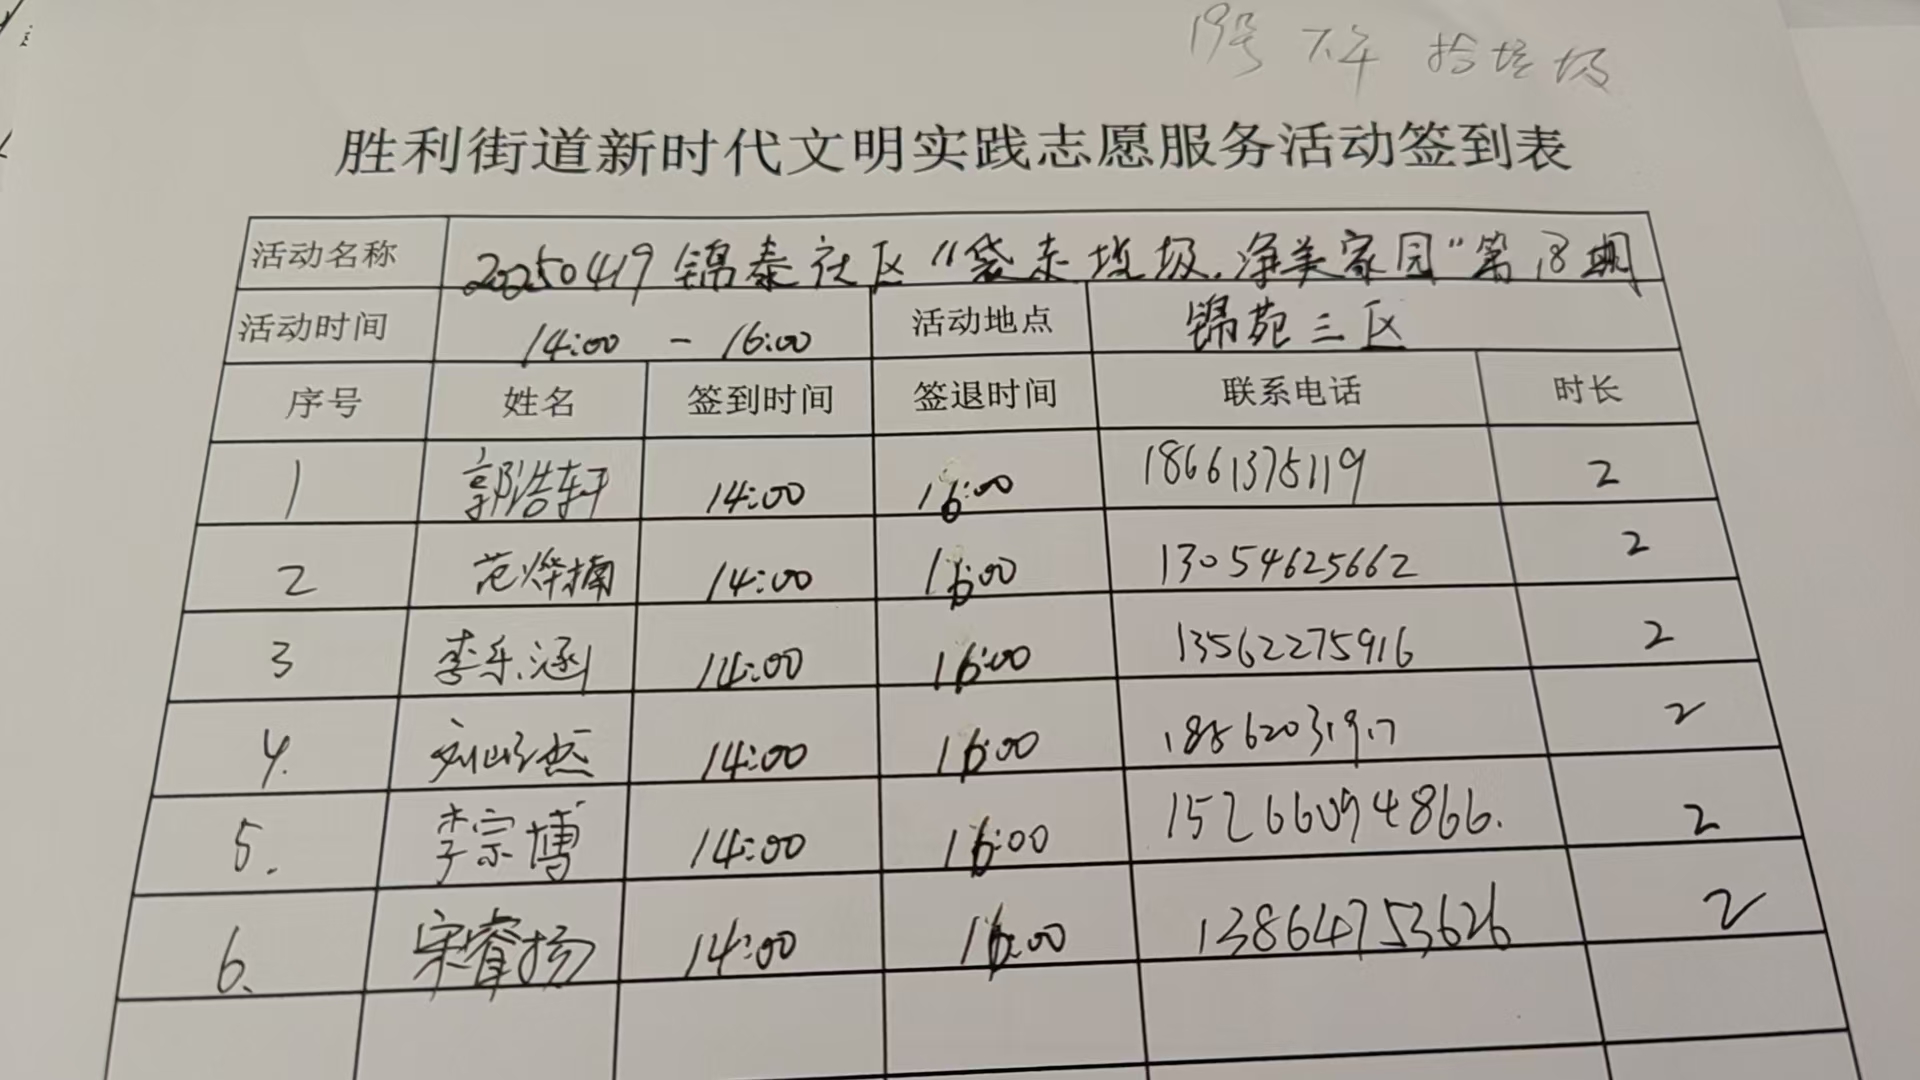 19号 下午 拾垃圾
胜利街道新时代文明实践志愿服务活动签到表
活动名称 20250419锦泰社区“袋走垃圾.净美家园”第18期
活动时间 14:00 - 16:00 活动地点 锦苑三区
序号 姓名 签到时间 签退时间 联系电话 时长
1 郭浩轩 14:00 16:00 18661375119 2
2 范烨楠 14:00 16:00 13054625662 2
3 李乐涵 14:00 16:00 13562275916 2
4. 刘屿然 14:00 16:00 18562031917 2
5. 李宗博 14:00 16:00 15266094866. 2
6. 宋睿扬 14:00 16:00 13864753626 2